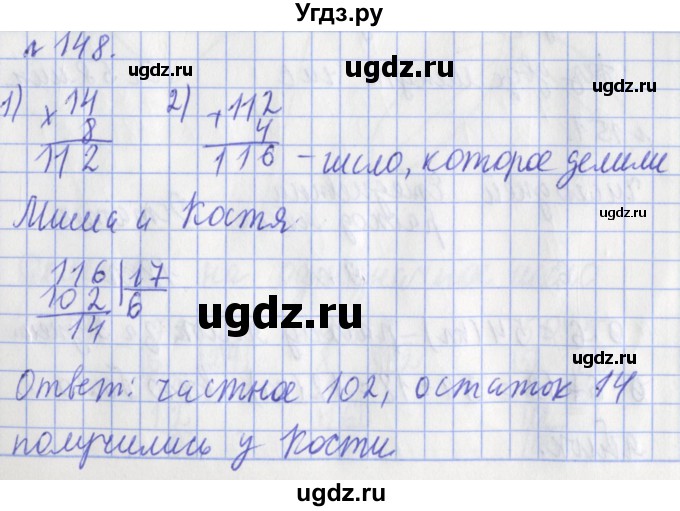 Угдз.ру
№ 148.
1) 14 2) 112
× 8 + 4
112 116 – число, которое делили
Миша и Костя.
116 | 17
102 6
14
Ответ: частное 102, остаток 14
получились у Кости.
ugdz.ru
ugdz.ru
ugdz.ru
ugdz.ru
ugdz.ru
ugdz.ru
ugdz.ru